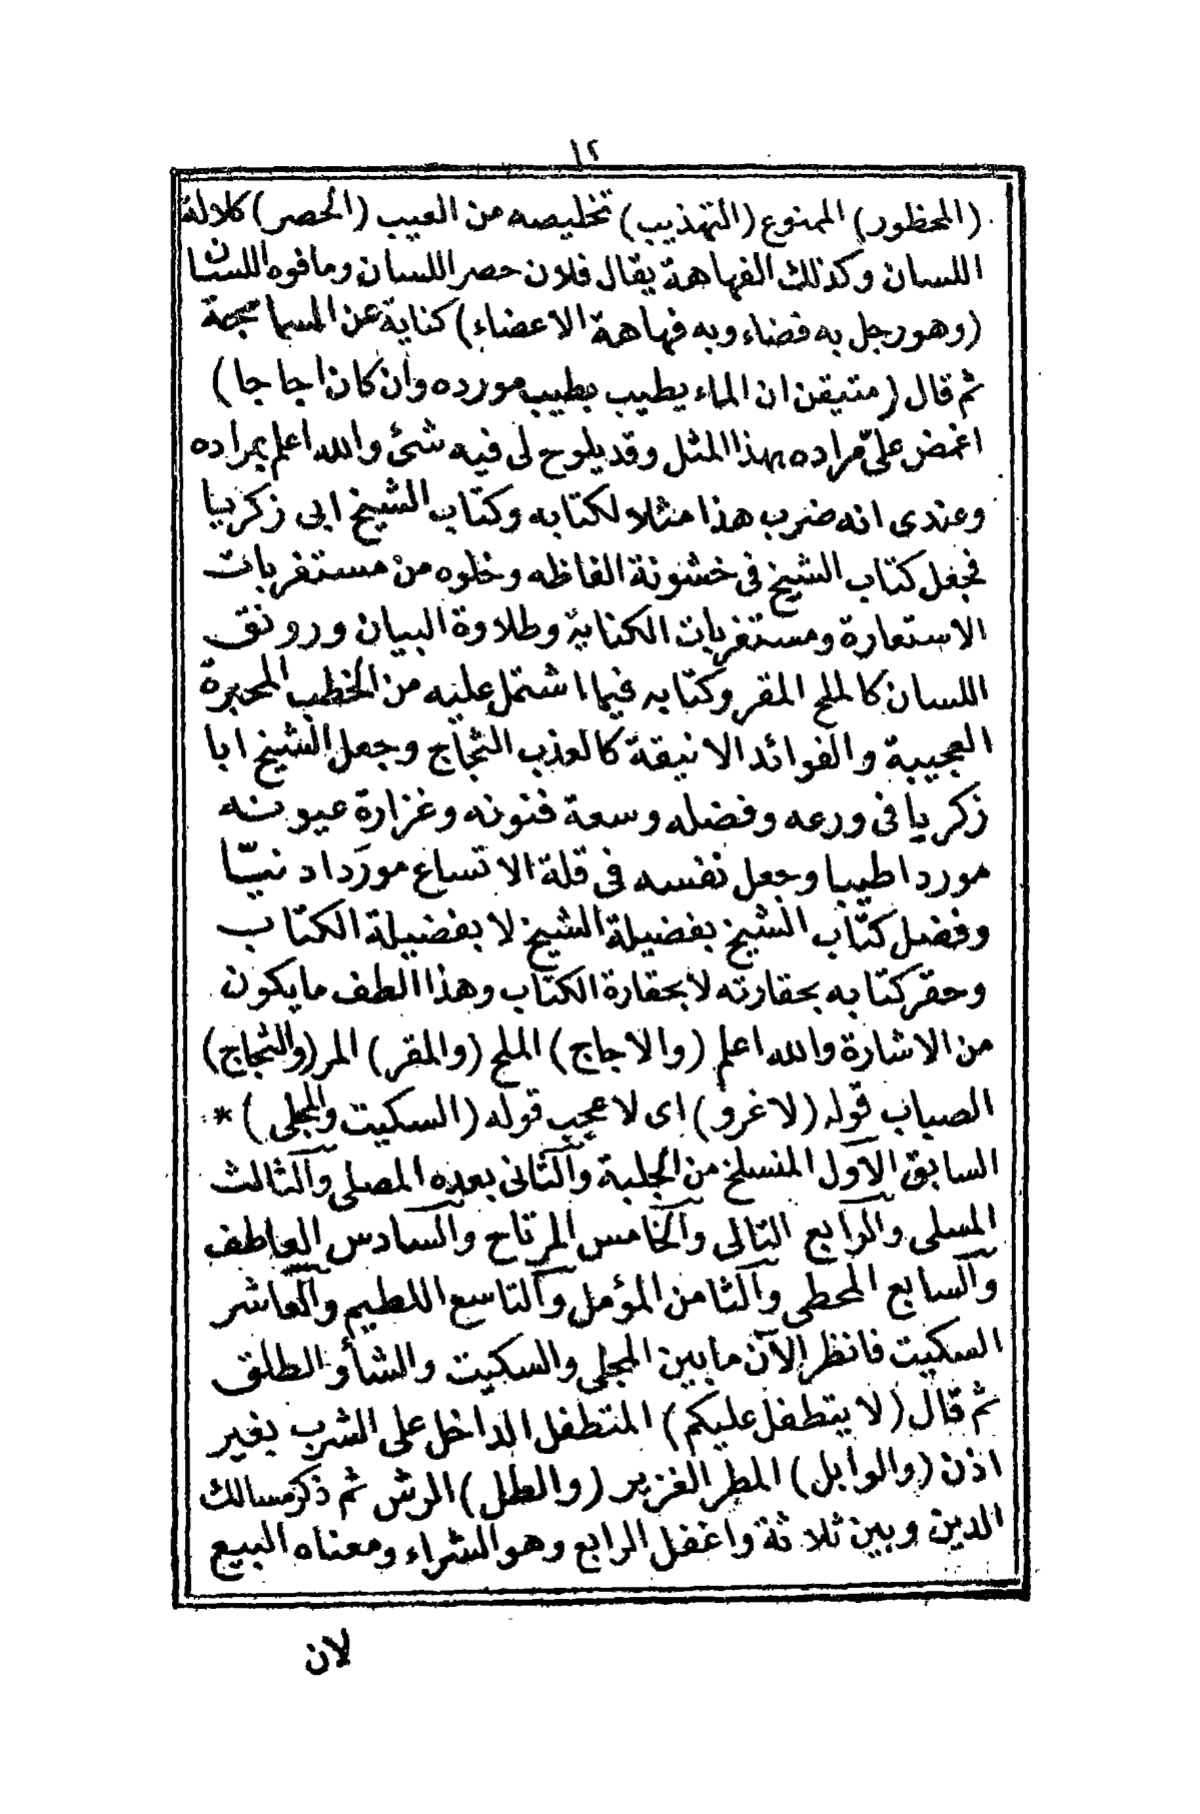 ١٢
(المحظور) الممنوع (التهذيب) تخليصه من العيب (الحصر) كلالة
اللسان وكذلك الفهاهة يقال فلان حصر اللسان ومافوه اللسان
(وهو رجل به فضاء وبه فهاهة الاعضاء) كناية عن المسماجة
ثم قال (متيقن ان الماء يطيب بطيب مورده وان كان اجاجا)
اغمض علىّ مراده بهذا المثل وقد يلوح لى فيه شئ والله اعلم بمراده
وعندى انه ضرب هذا مثلا لكتابه وكتاب الشيخ ابى زكريا
فجعل كتاب الشيخ فى خشونة الفاظه وخلوه من مستغربات
الاستعارة ومستغربات الكناية وطلاوة البيان ورونق
اللسان كالملح المقر وكتابه فيما اشتمل عليه من الخطب المحبرة
العجيبة والفوائد الانيقة كالعذب الثجاج وجعل الشيخ ابا
زكريا فى ورعه وفضله وسعة فنونه وغزارة عيونه
موردا طيبا وجعل نفسه فى قلة الاتساع موردا دنيّا
وفضل كتاب الشيخ بفضيلة الشيخ لا بفضيلة الكتاب
وحقر كتابه بحقارته لا بحقارة الكتاب وهذا الطف ما يكون
من الاشارة والله اعلم (والاجاج) الملح (والمقر) المر (والثجاج)
الصباب قوله (لا غرو) اى لا عجب قوله (السكيت والمجلى) *
السابق الاول المنسلخ من الحلبة والثانى بعده المصلى والثالث
المسلى والرابع التالى والخامس المرتاح والسادس العاطف
والسابع المحطى والثامن المؤمل والتاسع اللطيم والعاشر
السكيت فانظر الآن ما بين المجلى والسكيت والشأو الطلق
ثم قال (لا يتطفل عليكم) المتطفل الداخل على الشرب بغير
اذن (والوابل) المطر الغزير (والطل) الرش ثم ذكر مسالك
الدين وبين ثلاثة واغفل الرابع وهو الشراء ومعناه البيع
لان